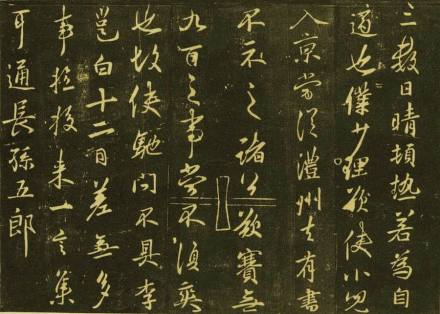 三數日晴頓熱若為自
適也僕少理欲使小兒
入京當須澧州去有書
不示之諸公欲賽無
九百之事當不須爾
也故使馳問不具李
邕白十二日差無多
事檢校來一言集
耳通長孫五郎